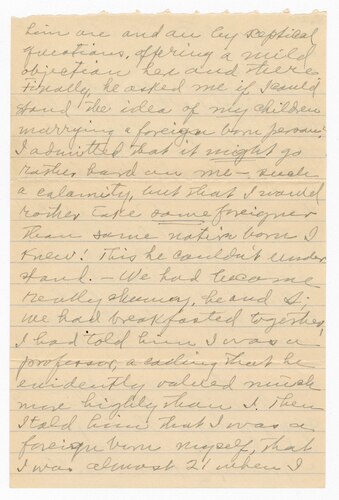 him on and on by sceptical
questions, offering a mild
objection here and there.
Finally, he asked me if I could
stand the idea of my children
marrying a foreign born person?
I admitted that it might go
rather hard on me – such
a calamity, but that I would
rather take some foreigner
than some native born I
knew! This he couldn't under
stand. – We had become
really chummy, he and I;
we had breakfasted together,
I had told him I was a
professor, a calling that he
evidently valued much
more highly than I. Then
I told him that I was a
foreign born myself, that
I was almost 21 when I